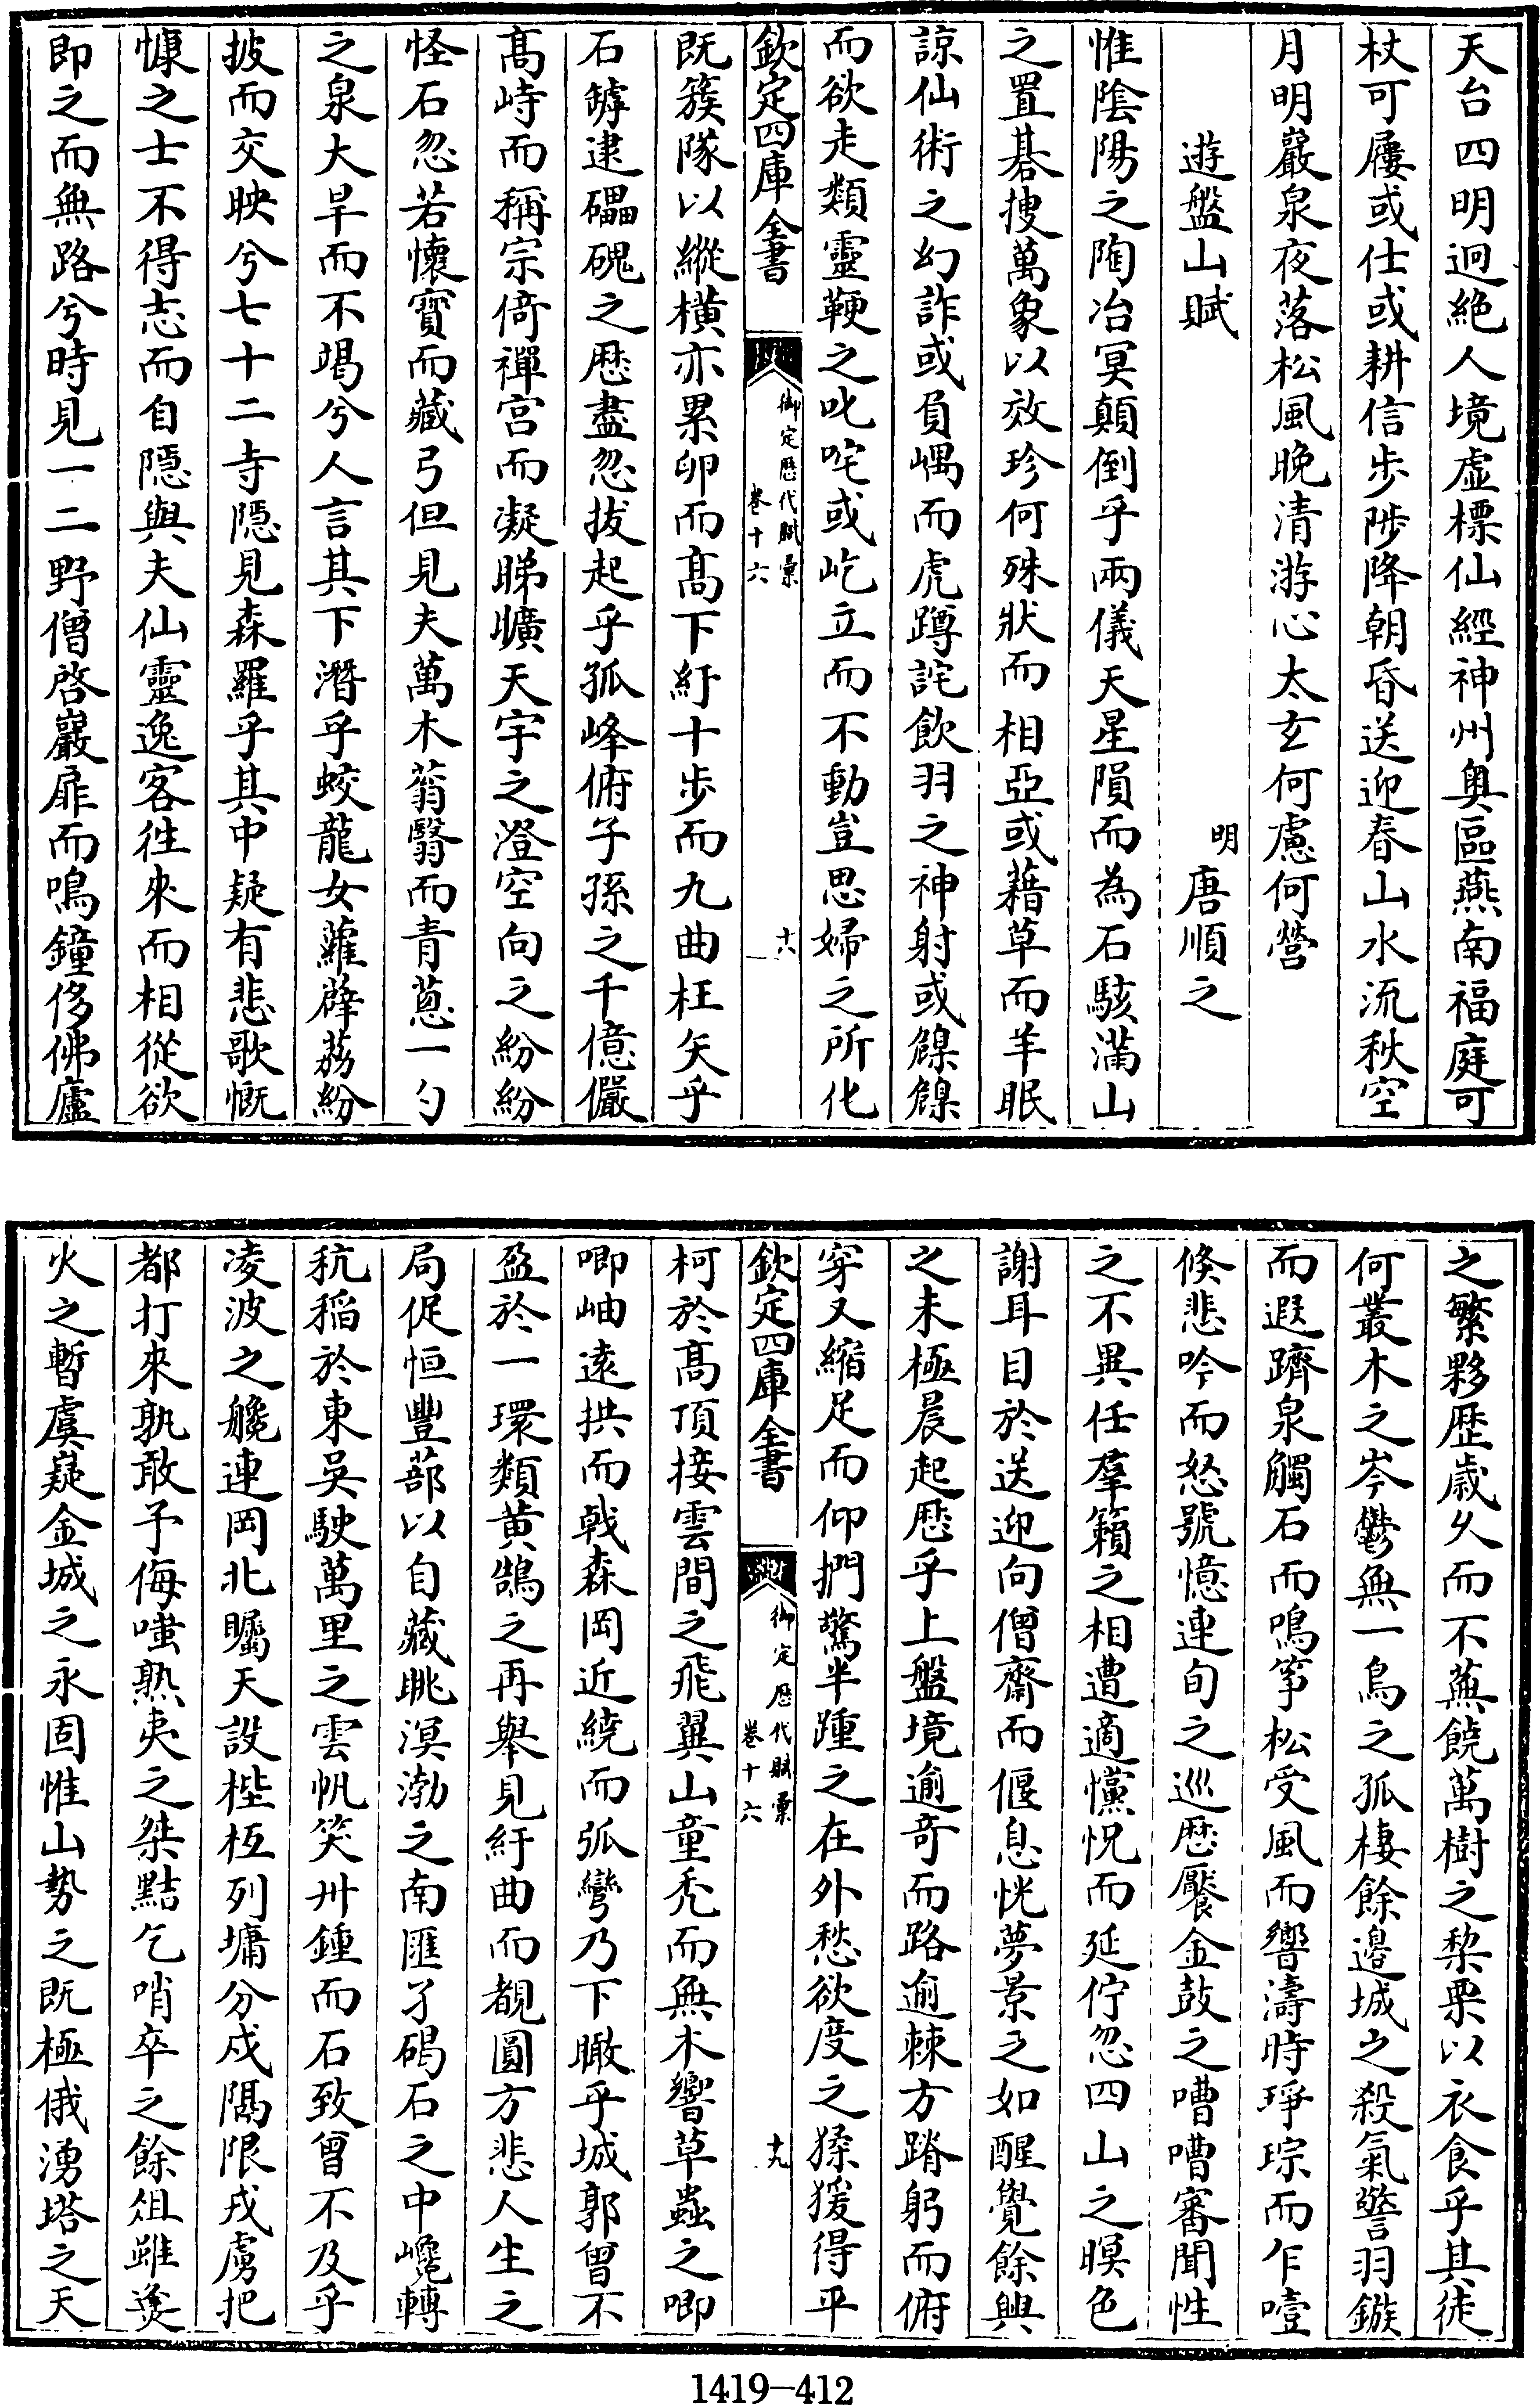 天台四明迥絶人境虚標仙經神州奥區燕南福庭可
杖可屨或仕或耕信步陟降朝昏送迎春山水流秋空
月明巖泉夜落松風晚清游心太玄何慮何營
遊盤山賦
明 唐順之
惟陰陽之陶冶冥顛倒乎兩儀天星隕而為石駭滿山
之置碁搜萬象以效珍何殊狀而相亞或藉草而羊眠
諒仙術之幻詐或負嵎而虎蹲詫飲羽之神射或䫥䫥
而欲走類靈鞭之叱咤或屹立而不動豈思婦之所化
欽定四庫全書
御定歴代賦彙
卷十六
十八
既簇隊以縱横亦累卵而髙下紆十步而九曲枉矢乎
石罅逮礧磈之歴盡忽拔起乎孤峰俯子孫之千億儼
髙峙而稱宗倚禪宫而凝睇曠天宇之澄空向之紛紛
怪石忽若懷寶而藏弓但見夫萬木蓊翳而青蔥一勺
之泉大旱而不竭兮人言其下潛乎蛟龍女蘿薜荔紛
披而交映兮七十二寺隱見森羅乎其中疑有悲歌慨
慷之士不得志而自隱與夫仙靈逸客徃來而相從欲
即之而無路兮時見一二野僧啓巖扉而鳴鐘侈佛廬
之繁夥歴歳久而不蕪饒萬樹之棃栗以衣食乎其徒
何叢木之岑鬱無一鳥之孤棲餘邊城之殺氣警羽鏃
而遐躋泉觸石而鳴箏松受風而響濤時琤琮而乍噎
倐悲吟而怒號憶連旬之巡歴饜金鼓之嘈嘈審聞性
之不異任羣籟之相遭適戃怳而延佇忽四山之暝色
謝耳目於送迎向僧齋而偃息恍夢景之如醒覺餘興
之未極晨起歴乎上盤境逾竒而路逾棘方蹐躬而俯
穿又縮足而仰捫驚半踵之在外愁欲度之猱猨得平
欽定四庫全書
御定歴代賦彙
卷十六
十九
柯於髙頂接雲間之飛翼山童秃而無木響草蟲之唧
唧岫逺拱而戟森岡近繞而弧彎乃下瞰乎城郭曾不
盈於一環類黄鵠之再舉見紆曲而覩圓方悲人生之
局促恒豐蔀以自藏眺溟渤之南匯孑碣石之中巉轉
秔稻於東吳駛萬里之雲帆笑丱鍾而石致曾不及乎
凌波之艬連岡北矚天設梐枑列墉分戍隅限戎虜把
都打來孰敢予侮嗤熟夷之桀黠乞哨卒之餘俎雖燧
火之暫虞疑金城之永固惟山勢之既極俄湧塔之天
1419-412